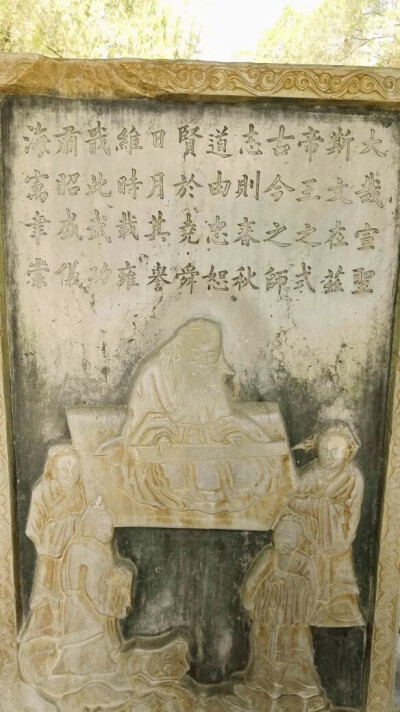 大哉宣聖
斯文在茲
帝王之式
古今之師
志則春秋
道由忠恕
賢於堯舜
日月其譽
維時載雍
戢此武功
肅昭威儀
海寓聿崇